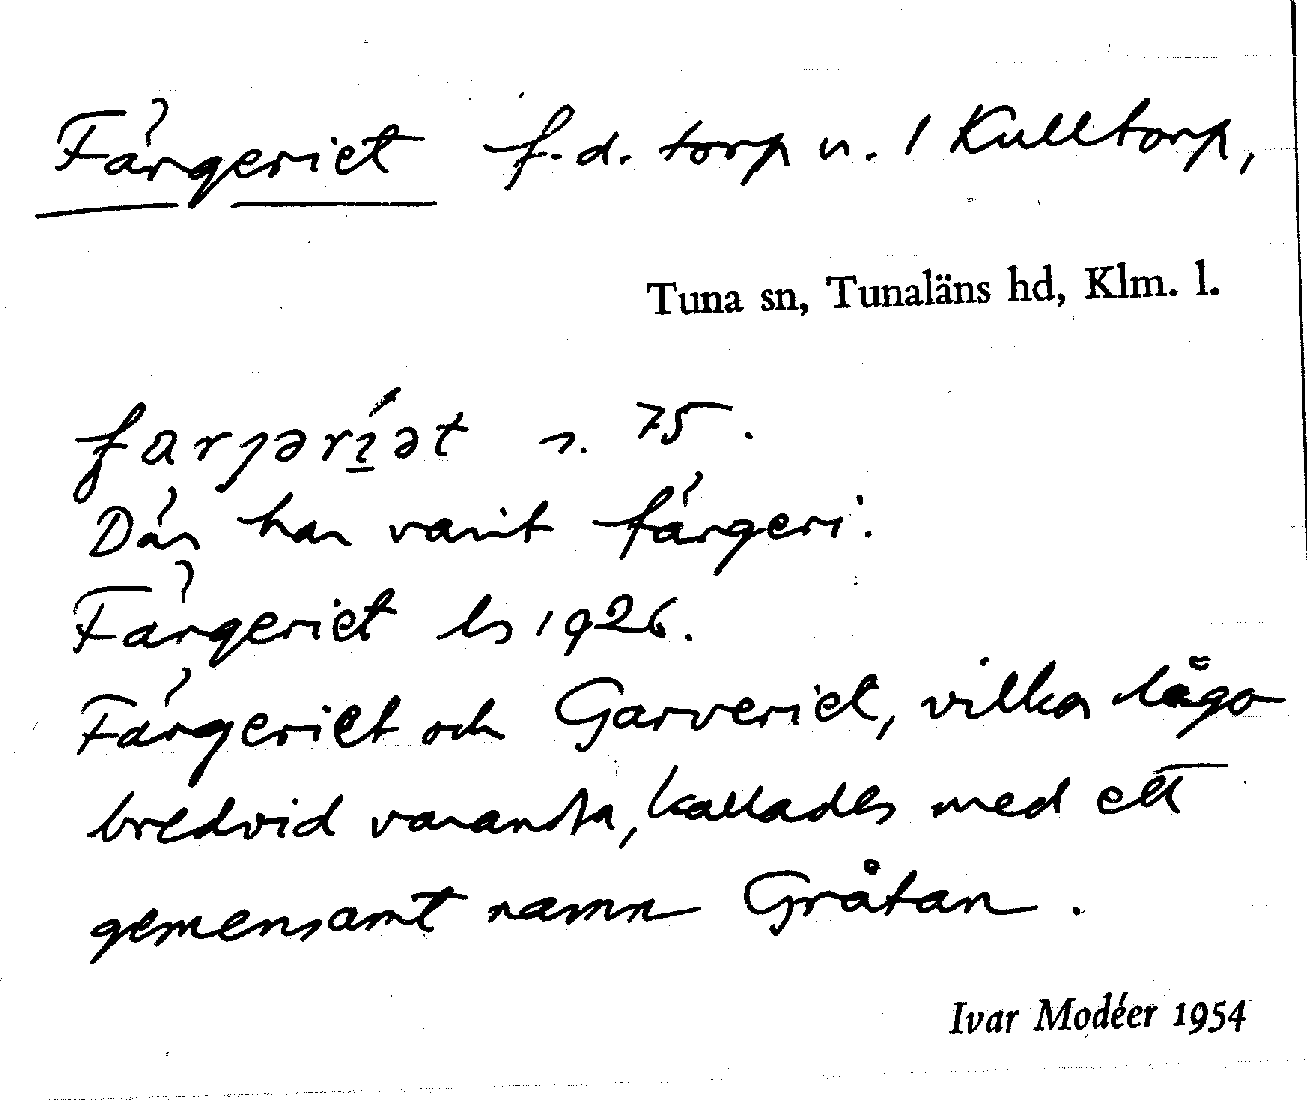 Färgeriet f.d. torp u. 1 Kulltorp,
Tuna sn, Tunaläns hd, Klm. l.
farȷəríət n. 75.
Där har varit färgeri.
Färgeriet ls 1926.
Färgeriet och Garveriet, vilka lågo
bredvid varandra, kallades med ett
gemensamt namn Gråtan.
Ivar Modéer 1954